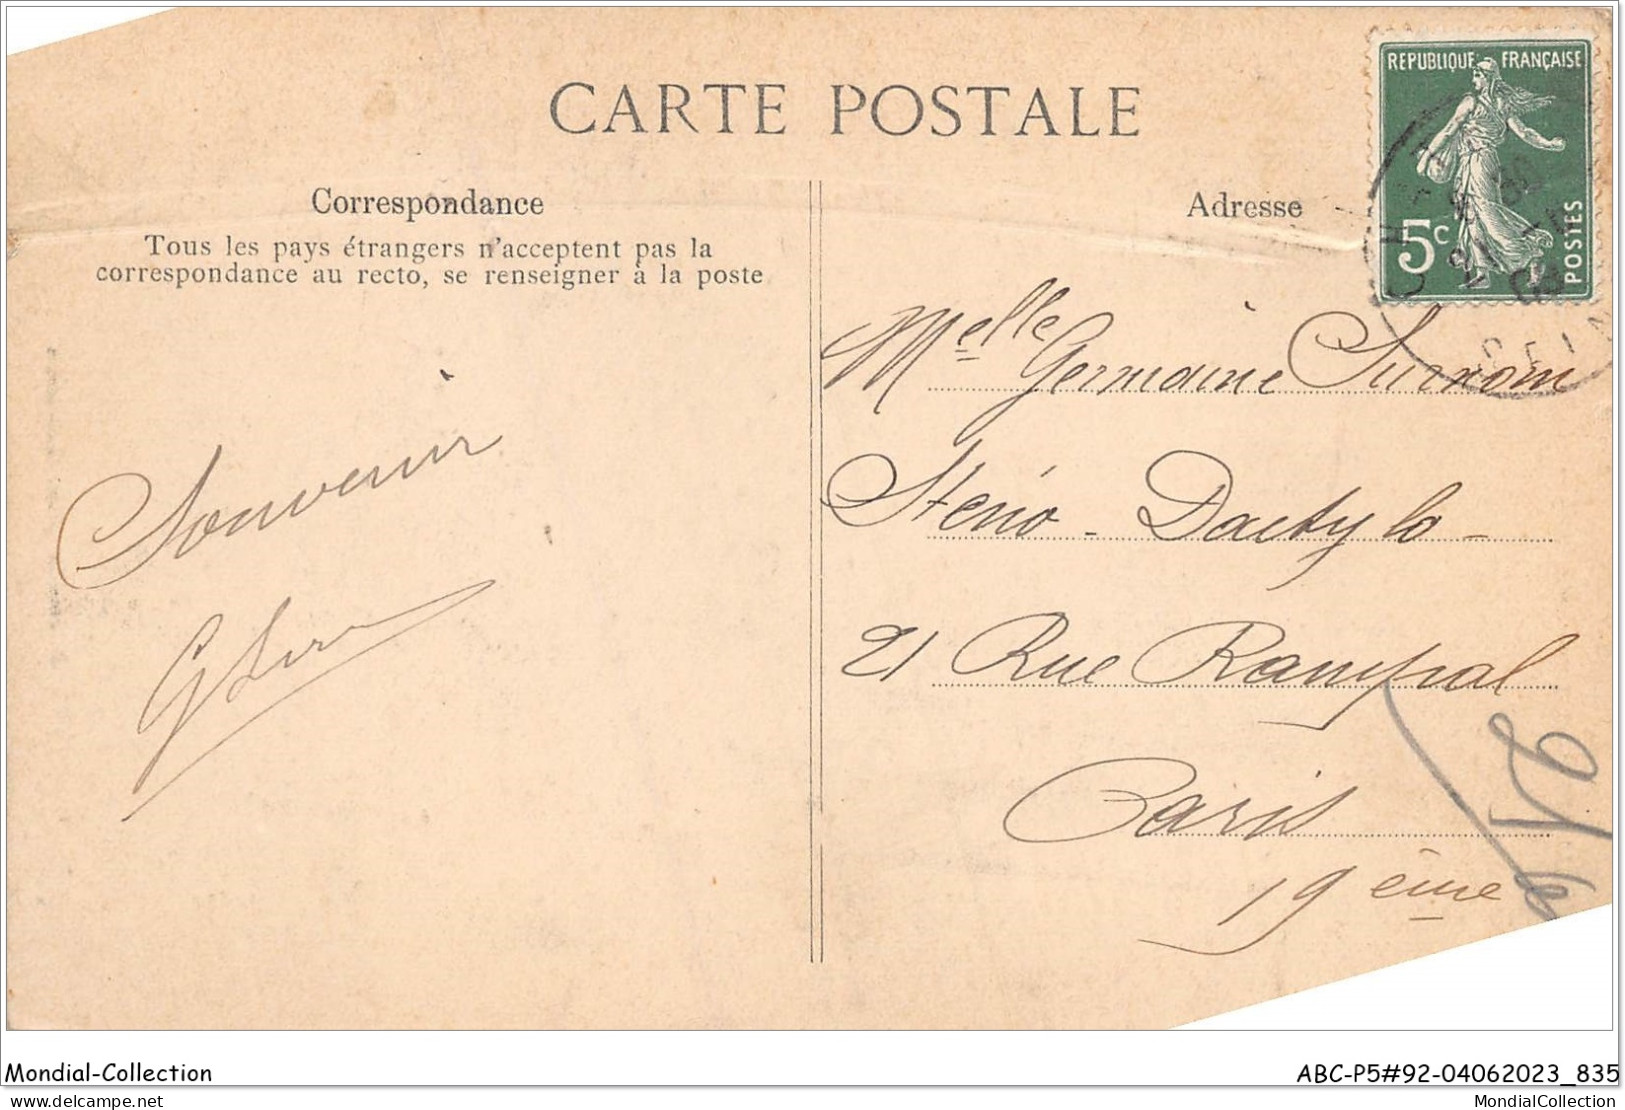 CARTE POSTALE
REPUBLIQUE FRANÇAISE
5c
POSTES
Correspondance
Tous les pays étrangers n'acceptent pas la
correspondance au recto, se renseigner à la poste
Souvenir
Adresse
Melle Germaine Surnom
Sténo - Dactylo -
21 Rue Rampal
Paris
19ème
21
Mondial-Collection
ABC-P5#92-04062023_835
delcampe.net
MondialCollection